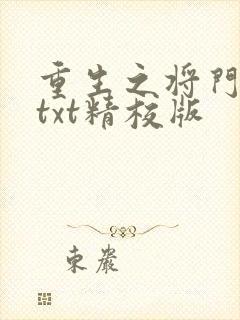 重生之将門
txt精校版
東巖